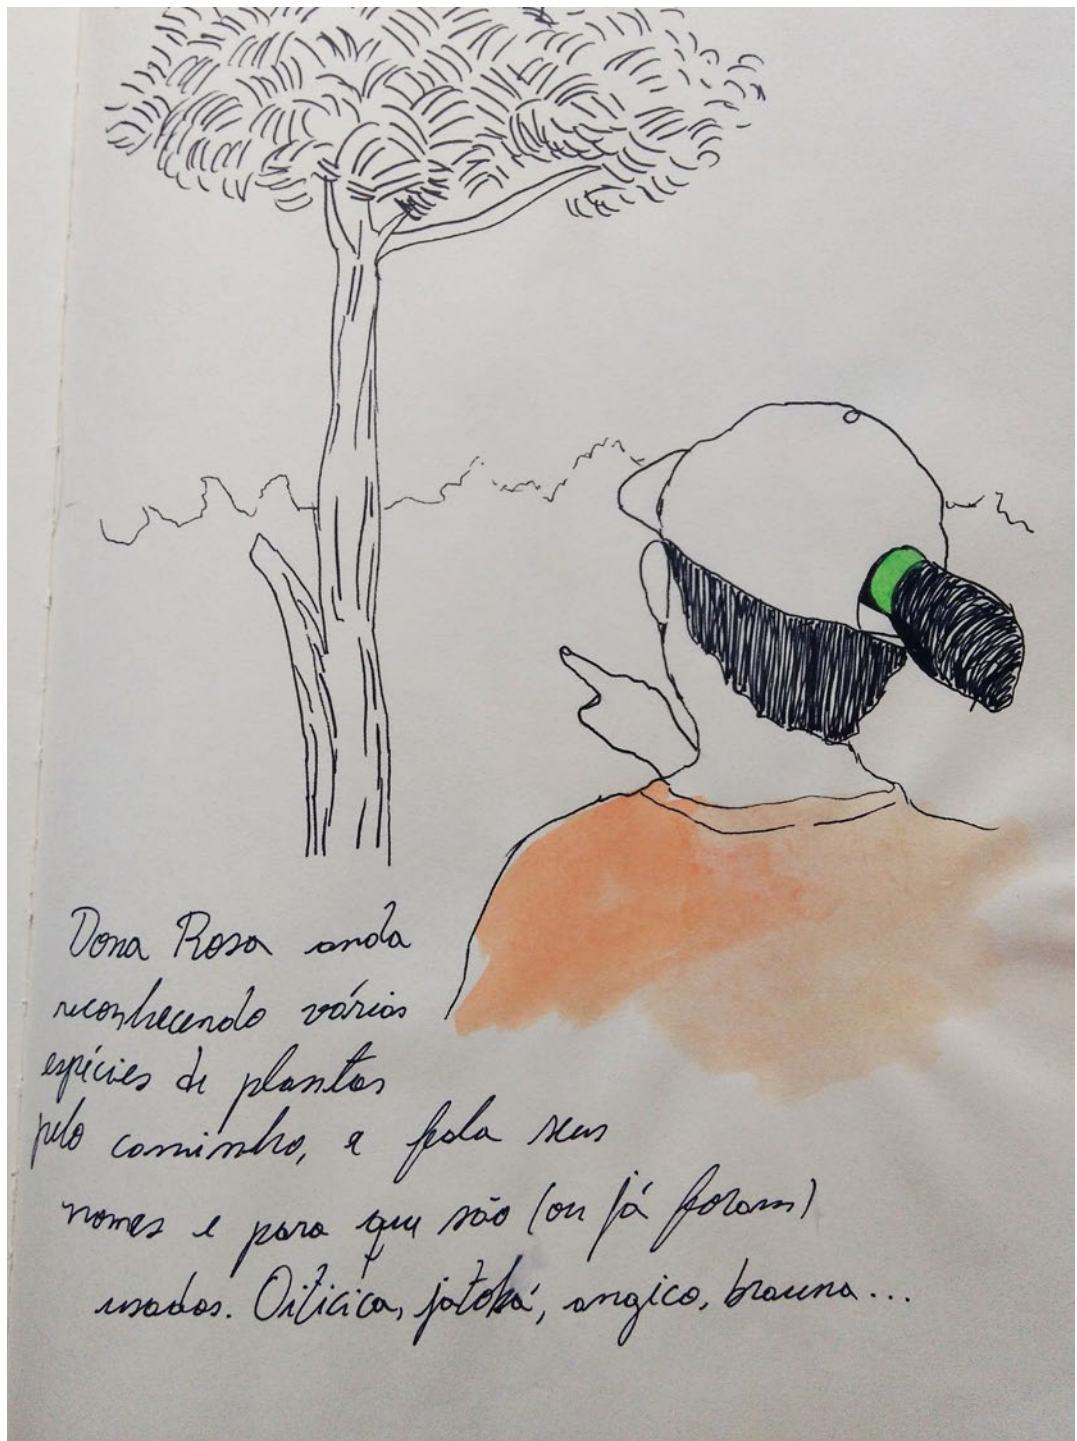 Dona Rosa anda
reconhecendo várias
espécies de plantas
pelo caminho, e fala seus
nomes e para que são (ou já foram)
usadas. Oiticica, jatobá, angico, brauna...